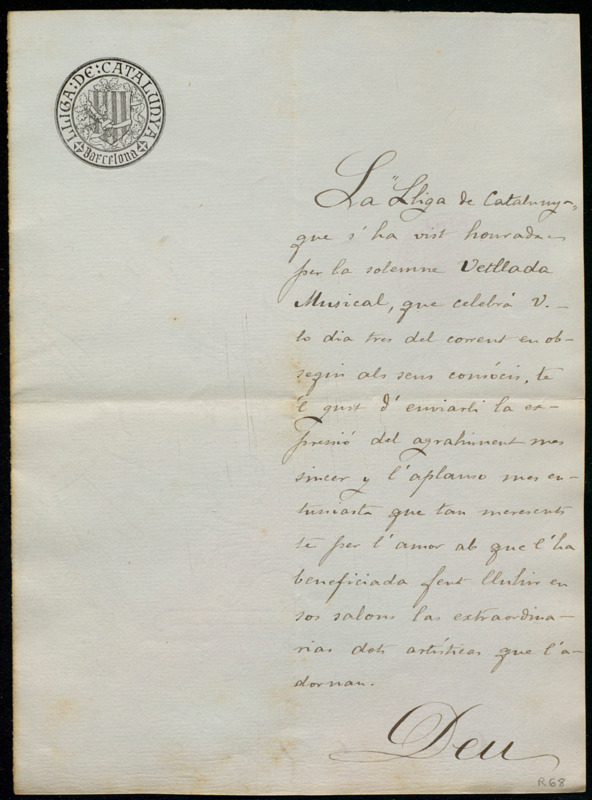 LLIGA·DE·CATALUNYA
Barcelona
La "Lliga de Catalunya"
que s'ha vist honrada
per la solemne Vetllada
Musical, que celebrá V.
lo dia tres del corrent en ob-
sequi als seus consócis, te
'l gust d'enviarli la ex-
pressió del agrahiment mes
sincer y l'aplauso mes en-
tusiasta que tan merescuts
té per l'amor ab que l'ha
beneficiada fent lluhir en
sos salons las extraordina-
rias dots artísticas que l'a-
dornan.
Deu
R68